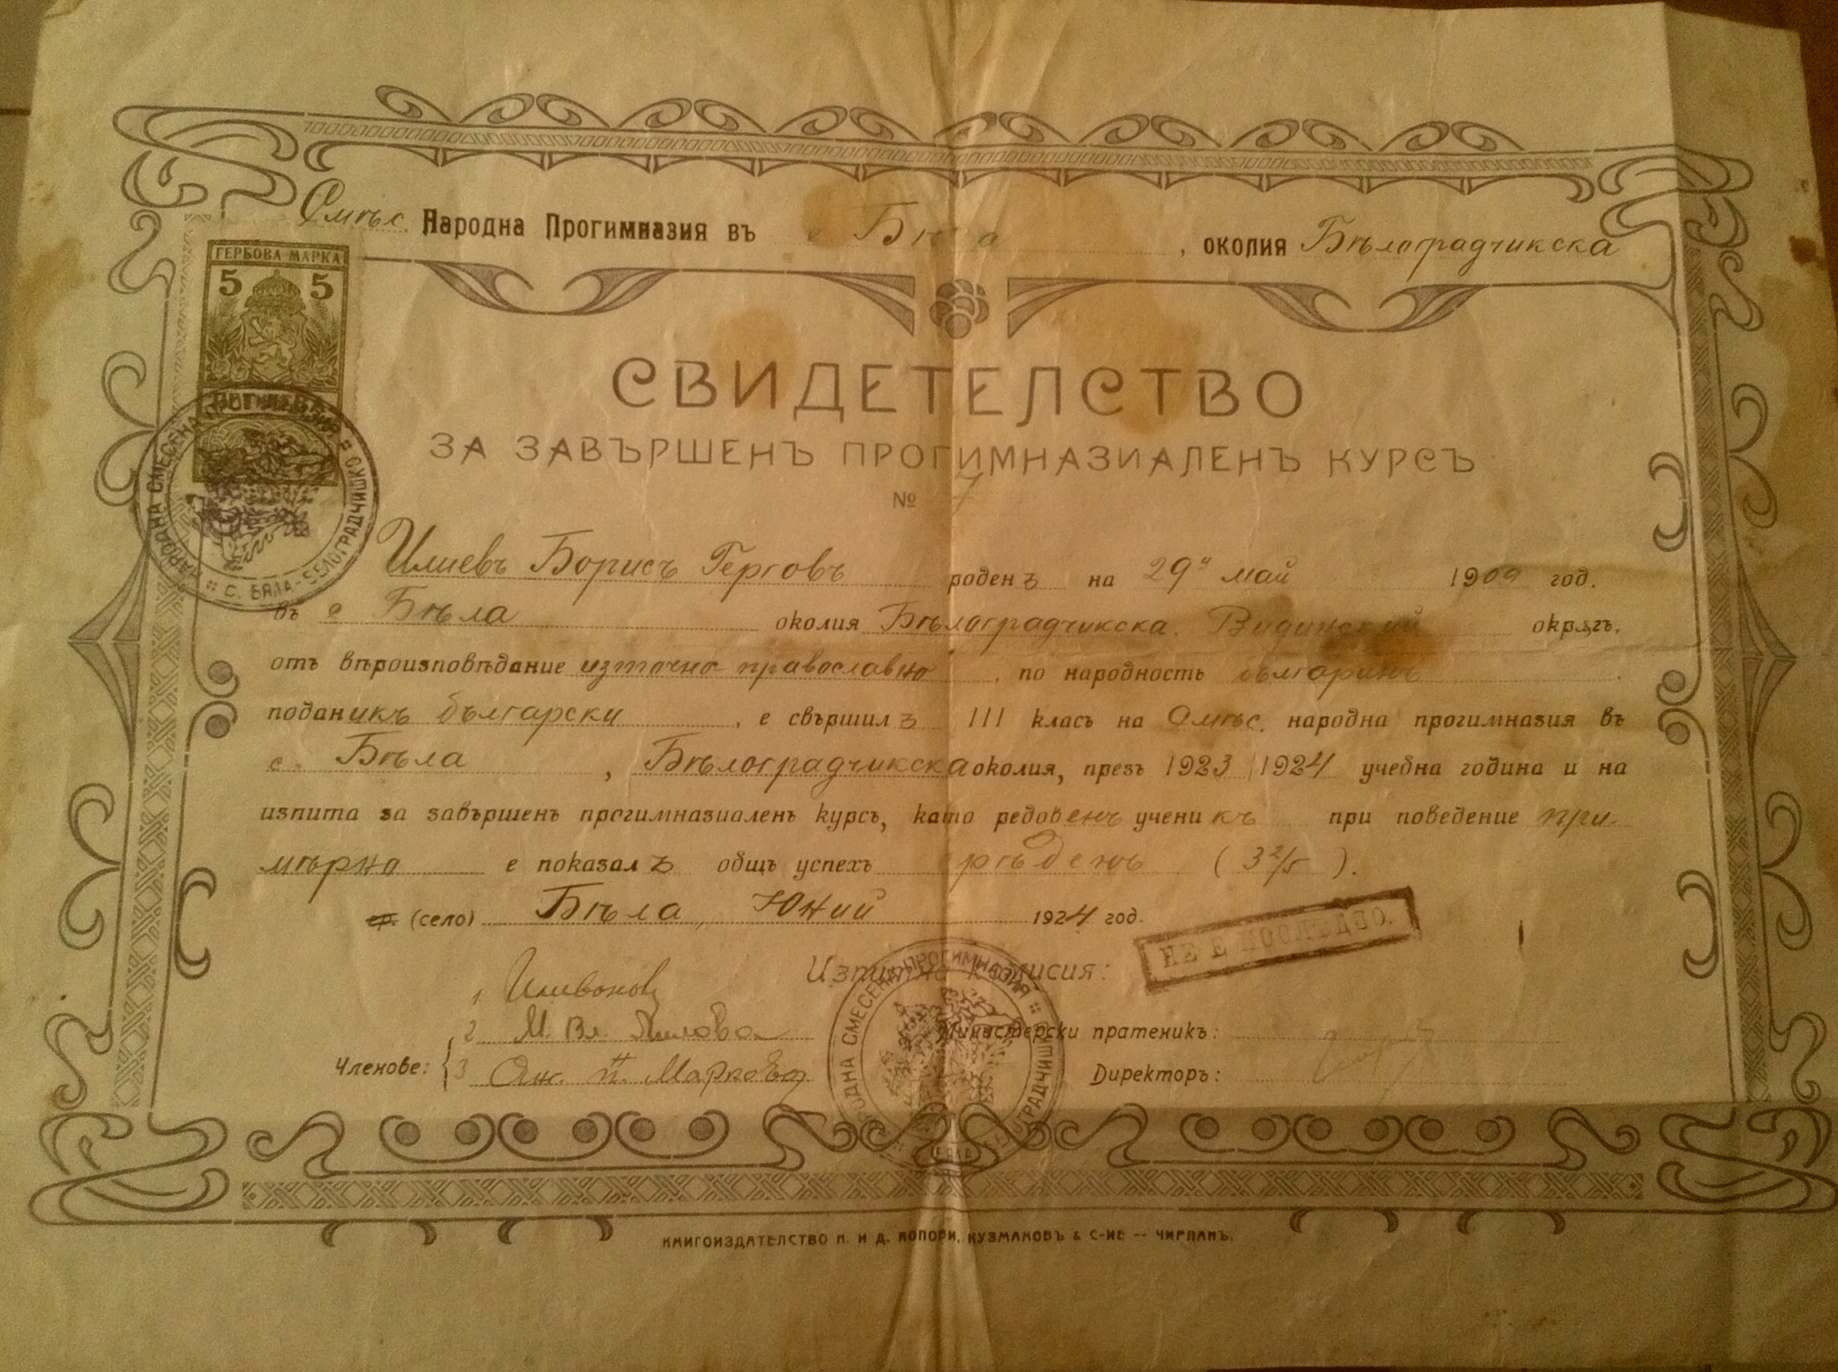 Смѣс. Народна Прогимназия въ с Бѣла, околия Бѣлоградчикска
ГЕРБОВА МАРКА
5 5
СВИДЕТЕЛСТВО
ЗА ЗАВЪРШЕНЪ ПРОГИМНАЗИАЛЕНЪ КУРСЪ
№ 7
НАРОДНА СМЕСЕНА ПРОГИМНАЗИЯ С. БЯЛА - БЕЛОГРАДЧИШКО
Илиевъ Борисъ Герговъ роденъ на 29й май 1909 год.
въ с Бѣла околия Бѣлоградчикска, Видинский окрѫгъ,
отъ вѣроизповѣдание източно православно, по народность българинъ
поданикъ български, е свършилъ III класъ на Смѣс. народна прогимназия въ
с. Бѣла, Бѣлоградчикска околия, презъ 1923/1924 учебна година и на
изпита за завършенъ прогимназиаленъ курсъ, като редовенъ ученикъ при поведение при-
мѣрно е показалъ общъ успехъ срѣденъ (3 2/5).
гр. (село) Бѣла, Юний 1924 год.
НЕ Е ПОСЛѢДНО.
Изпитна комисия:
1
2 М. Вл.
Министерски пратеникъ:
Членове: 3 Ан. П. Маркова
Директоръ:
НАРОДНА СМЕСЕНА ПРОГИМНАЗИЯ С. БЯЛА БЕЛОГРАДЧИШКО
КНИГОИЗДАТЕЛСТВО Н. И Д. КОПОРИ, КУЗМАНОВЪ & С-ИЕ -- ЧИРПАНЪ.